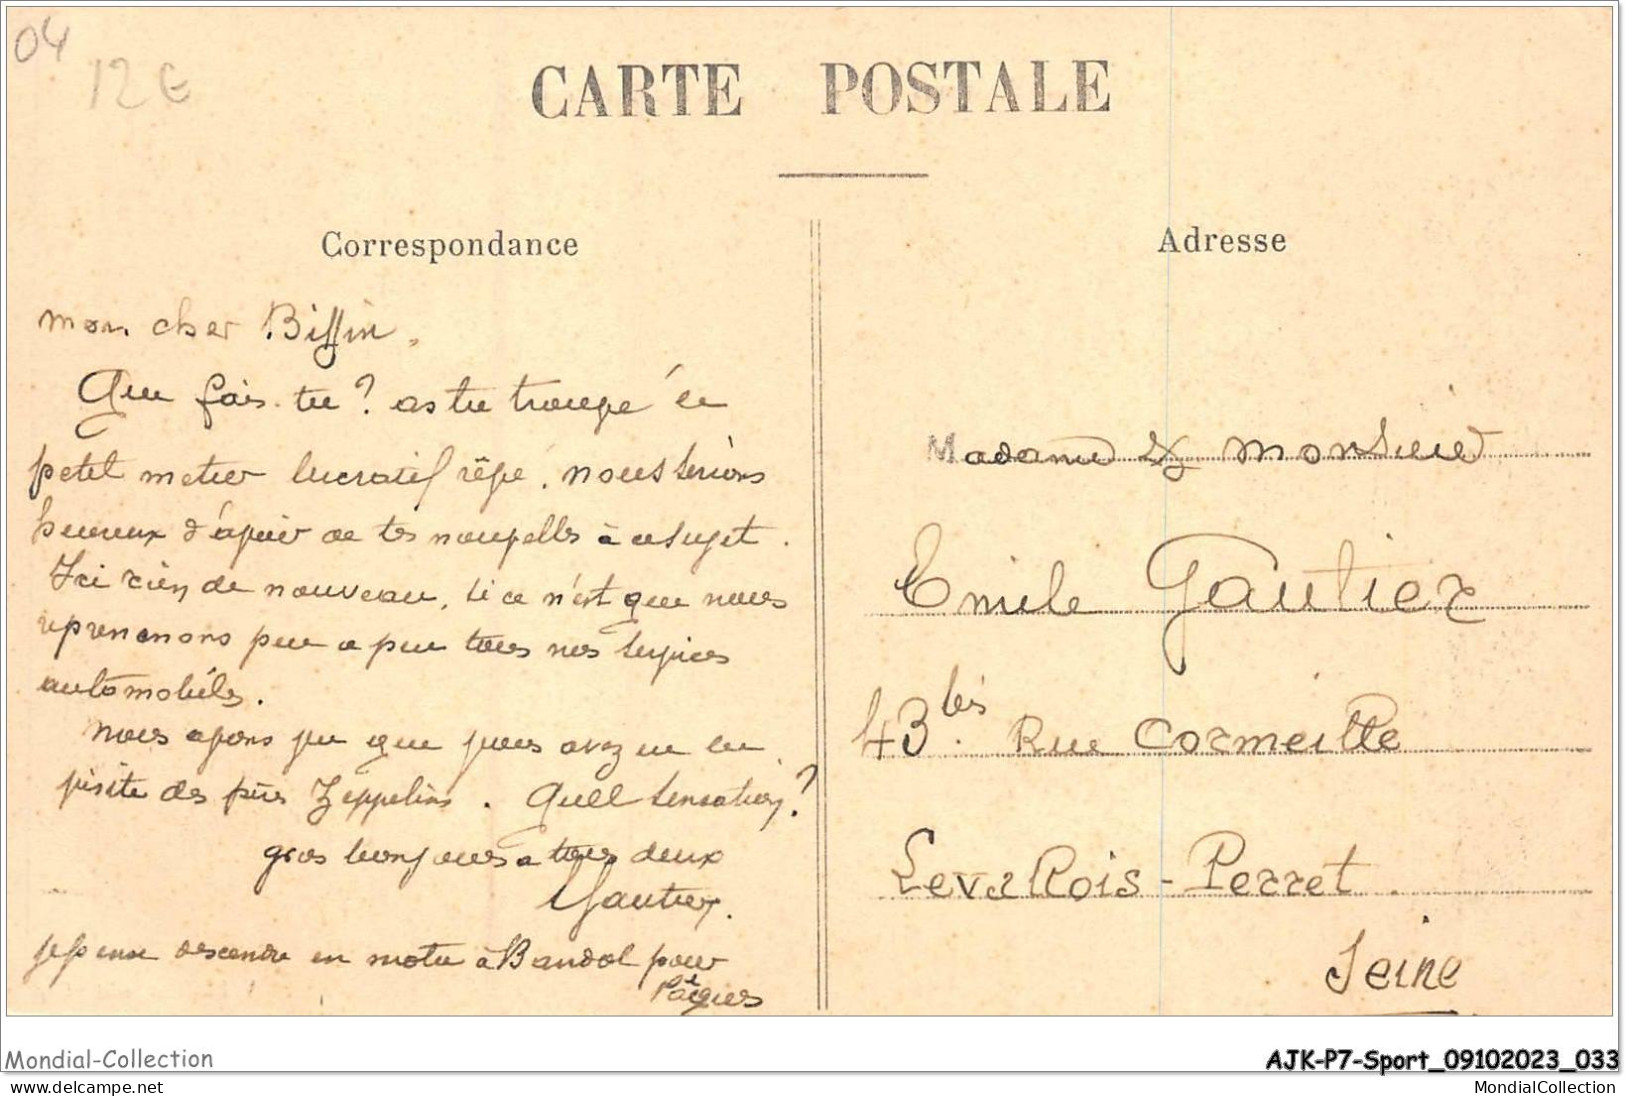 04
12€
CARTE POSTALE
Correspondance
mon cher Biffin.
Que fais-tu ? as tu trouvé ce
petit metier lucratif rêvé. nous serions
heureux d'avoir de tes nouvelles à ce sujet.
Ici rien de nouveau, si ce n'est que nous
reprenons peu a peu tous nos services
automobiles.
Nous avons vu que vous avez eu la
visite des Zeppelins. Quelle sensation ?
gros bonjours a tous deux
Gautier.
je pense descendre en moto à Bandol pour
Pâques
Adresse
Madame & Monsieur
Emile Gautier
43 bis. Rue Cormeille
Levallois-Perret.
Seine
Mondial-Collection
AJK-P7-Sport_09102023_033
www.delcampe.net
MondialCollection